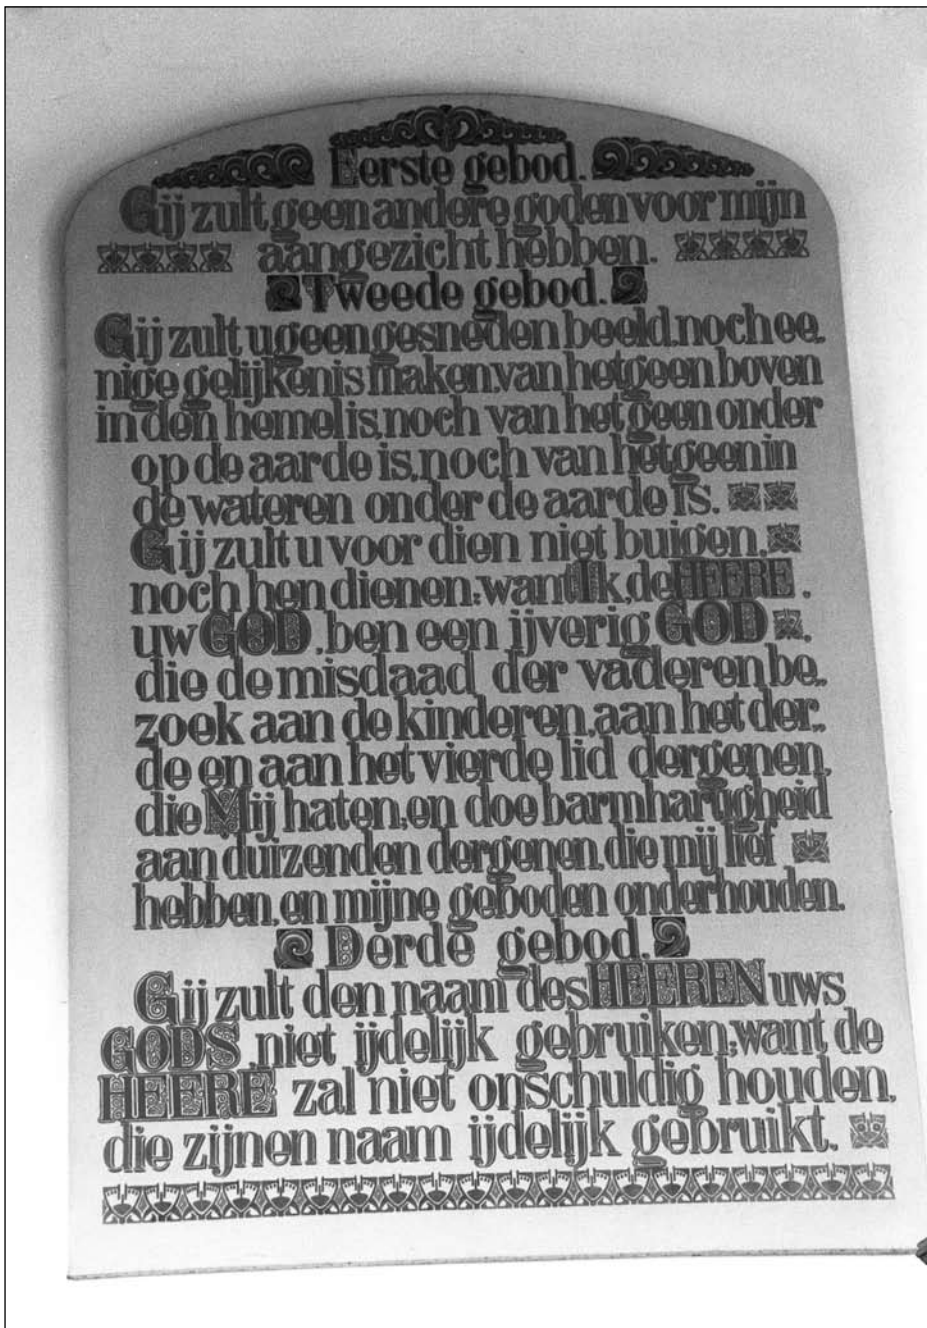 Eerste gebod.
Gij zult geen andere goden voor mijn
aangezicht hebben.
Tweede gebod.
Gij zult u geen gesneden beeld, noch ee„
nige gelijkenis maken, van hetgeen boven
in den hemel is, noch van het geen onder
op de aarde is, noch van hetgeen in
de wateren onder de aarde is.
Gij zult u voor dien niet buigen,
noch hen dienen; want Ik, de HEERE,
uw GOD, ben een ijverig GOD,
die de misdaad der vaderen be„
zoek aan de kinderen, aan het der„
de en aan het vierde lid dergenen,
die Mij haten, en doe barmhartigheid
aan duizenden dergenen, die mij lief
hebben, en mijne geboden onderhouden.
Derde gebod.
Gij zult den naam des HEEREN uws
GODS niet ijdelijk gebruiken; want de
HEERE zal niet onschuldig houden,
die zijnen naam ijdelijk gebruikt.